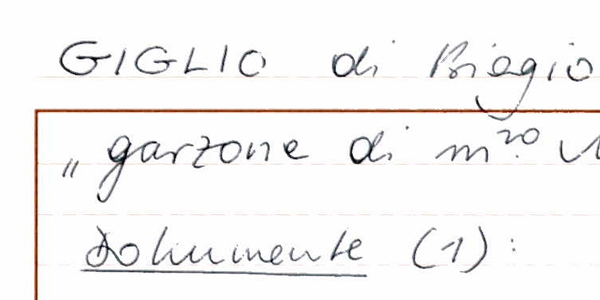 GIGLIO di Biagio
„garzone di m.ro
Dokumente (1):